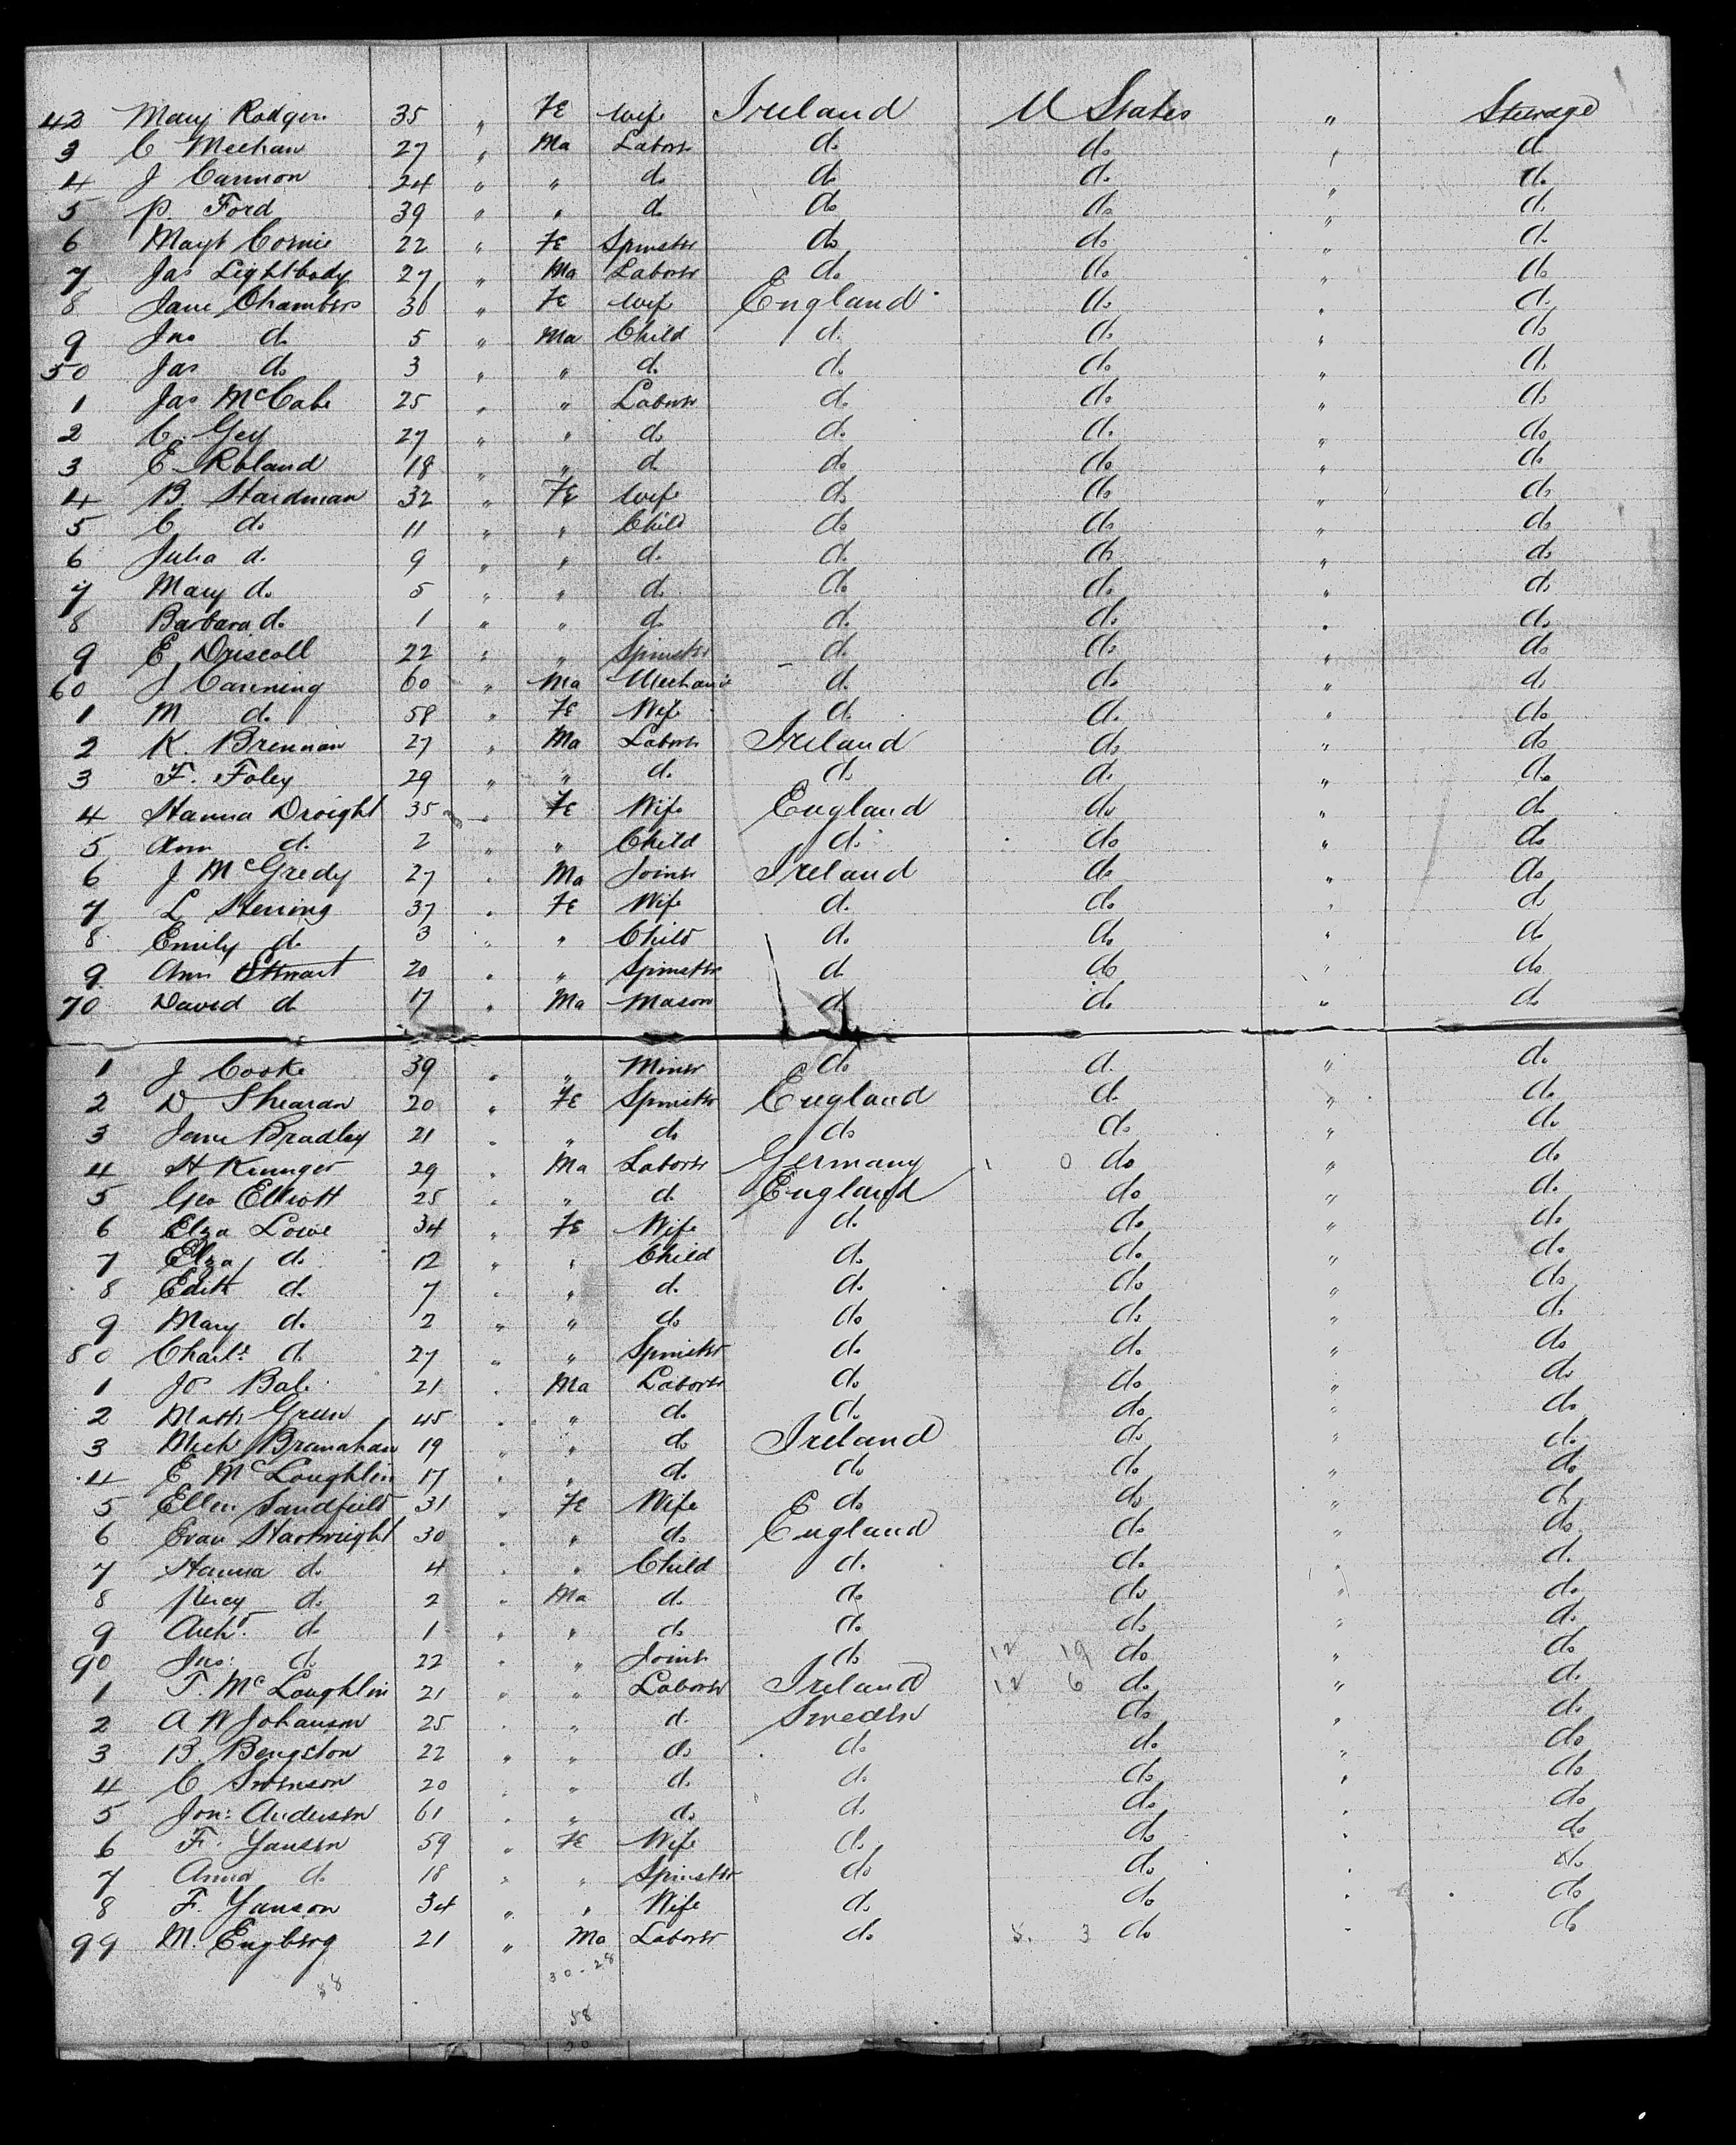 42 Mary Rodgers 35 " Fe Wife Ireland U States " Steerage
3 C Meehan 27 " Ma Laborer do do " do
4 J Cannon 24 " " do do do " do
5 P. Ford 39 " " do do do " do
6 Magt Cornie 22 " Fe Spinster do do " do
7 Jas Lightbody 27 " Ma Laborer do do " do
8 Jane Chambers 30 " Fe Wife England do " do
9 Jno do 5 " Ma Child do do " do
50 Jas do 3 " " do do do " do
1 Jas McCabe 25 " " Laborer do do " do
2 C. Gey 27 " " do do do " do
3 E Roland 18 " " do do do " do
4 B. Hardman 32 " Fe Wife do do " do
5 C do 11 " " Child do do " do
6 Julia do 9 " " do do do " do
7 Mary do 5 " " do do do " do
8 Barbara do 1 " " do do do " do
9 E Driscoll 22 " " Spinster do do " do
60 J Canning 60 " Ma Mechanic do do " do
1 M do 58 " Fe Wife do do " do
2 K. Brennan 27 " Ma Laborer Ireland do " do
3 F. Foley 29 " " do do do " do
4 Hanna Droight 35 " Fe Wife England do " do
5 Ann do 2 " " Child do do " do
6 J McGredy 27 " Ma Joiner Ireland do " do
7 L Herring 37 " Fe Wife do do " do
8 Emily do 3 " " Child do do " do
9 Ann Stewart 20 " " Spinster do do " do
70 David do 17 " Ma Mason do do " do
1 J Cooke 39 " " Miner do do " do
2 D Shearan 20 " Fe Spinster England do " do
3 Jane Bradley 21 " " do do do " do
4 H 29 " Ma Laborer Germany 0 do " do
5 Geo Elliott 25 " " do England do " do
6 Elza Lowe 34 " Fe Wife do do " do
7 Elza do 12 " " Child do do " do
8 Edith do 7 " " do do do " do
9 Mary do 2 " " do do do " do
80 Charlt do 27 " " Spinster do do " do
1 Jo Bale 21 " Ma Laborer do do " do
2 Matt Green 45 " " do do do " do
3 Mick Branahan 19 " " do Ireland do " do
4 E McLoughlin 17 " " do do do " do
5 Ellen Sandfield 31 " Fe Wife do do " do
6 Evan Hartwright 30 " " do England do " do
7 Hanna do 4 " " Child do do " do
8 Percy do 2 " Ma do do do " do
9 Archd do 1 " " do do do " do
90 Jno: do 22 " " Joiner do 12 19 do " do
1 T. McLoughlin 21 " " Laborer Ireland 12 6 do " do
2 A W Johanson 25 " " do Sweden do " do
3 B. Bengston 22 " " do do do " do
4 C Swenson 20 " " do do do " do
5 Jon: Anderson 61 " " do do do " do
6 F. Yansen 59 " Fe Wife do do " do
7 Anna do 18 " " Spinster do do " do
8 F. Yanson 34 " " Wife do do " do
99 M. Engberg 21 " Ma Laborer do 5. 3 do " do
30-28
58
58